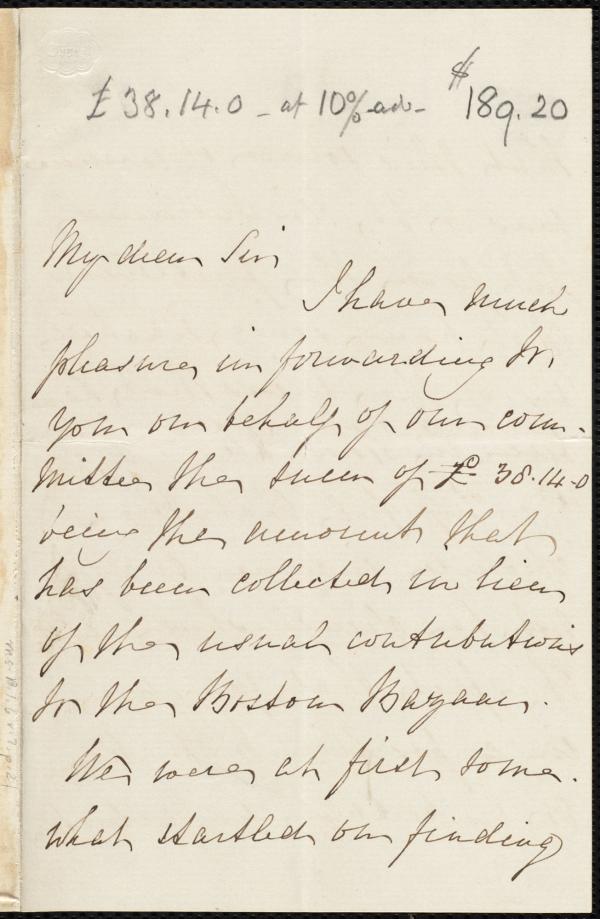 £38.14.0 - at 10% ad - $189.20
My dear Sir,
I have much
pleasure in forwarding to
you on behalf of our com-
mittee the sum of £ 38.14.0
being the amount that
has been collected in lieu
of the usual contributions
to the Boston Bazaar.
We were at first some-
what startled on finding